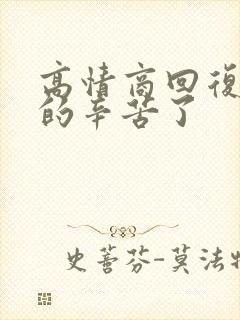 高情商回復
的辛苦了
史蒈芬-莫法特